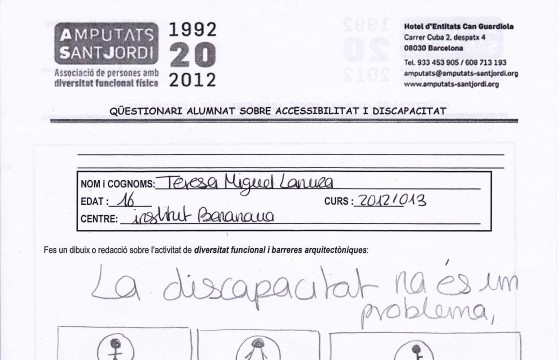 AMPUTATS
SANTJORDI
Associació de persones amb
diversitat funcional física
1992
20
2012
Hotel d'Entitats Can Guardiola
Carrer Cuba 2, despatx 4
08030 Barcelona
Tel. 933 453 905 / 608 713 193
amputats@amputats-santjordi.org
www.amputats-santjordi.org
QÜESTIONARI ALUMNAT SOBRE ACCESSIBILITAT I DISCAPACITAT
NOM I COGNOMS: Teresa Miguel Lanuza
EDAT: 16 CURS: 2012/013
CENTRE: institut Bernanaua
Fes un dibuix o redacció sobre l'activitat de diversitat funcional i barreres arquitectòniques:
La discapacitat na és um
problema,